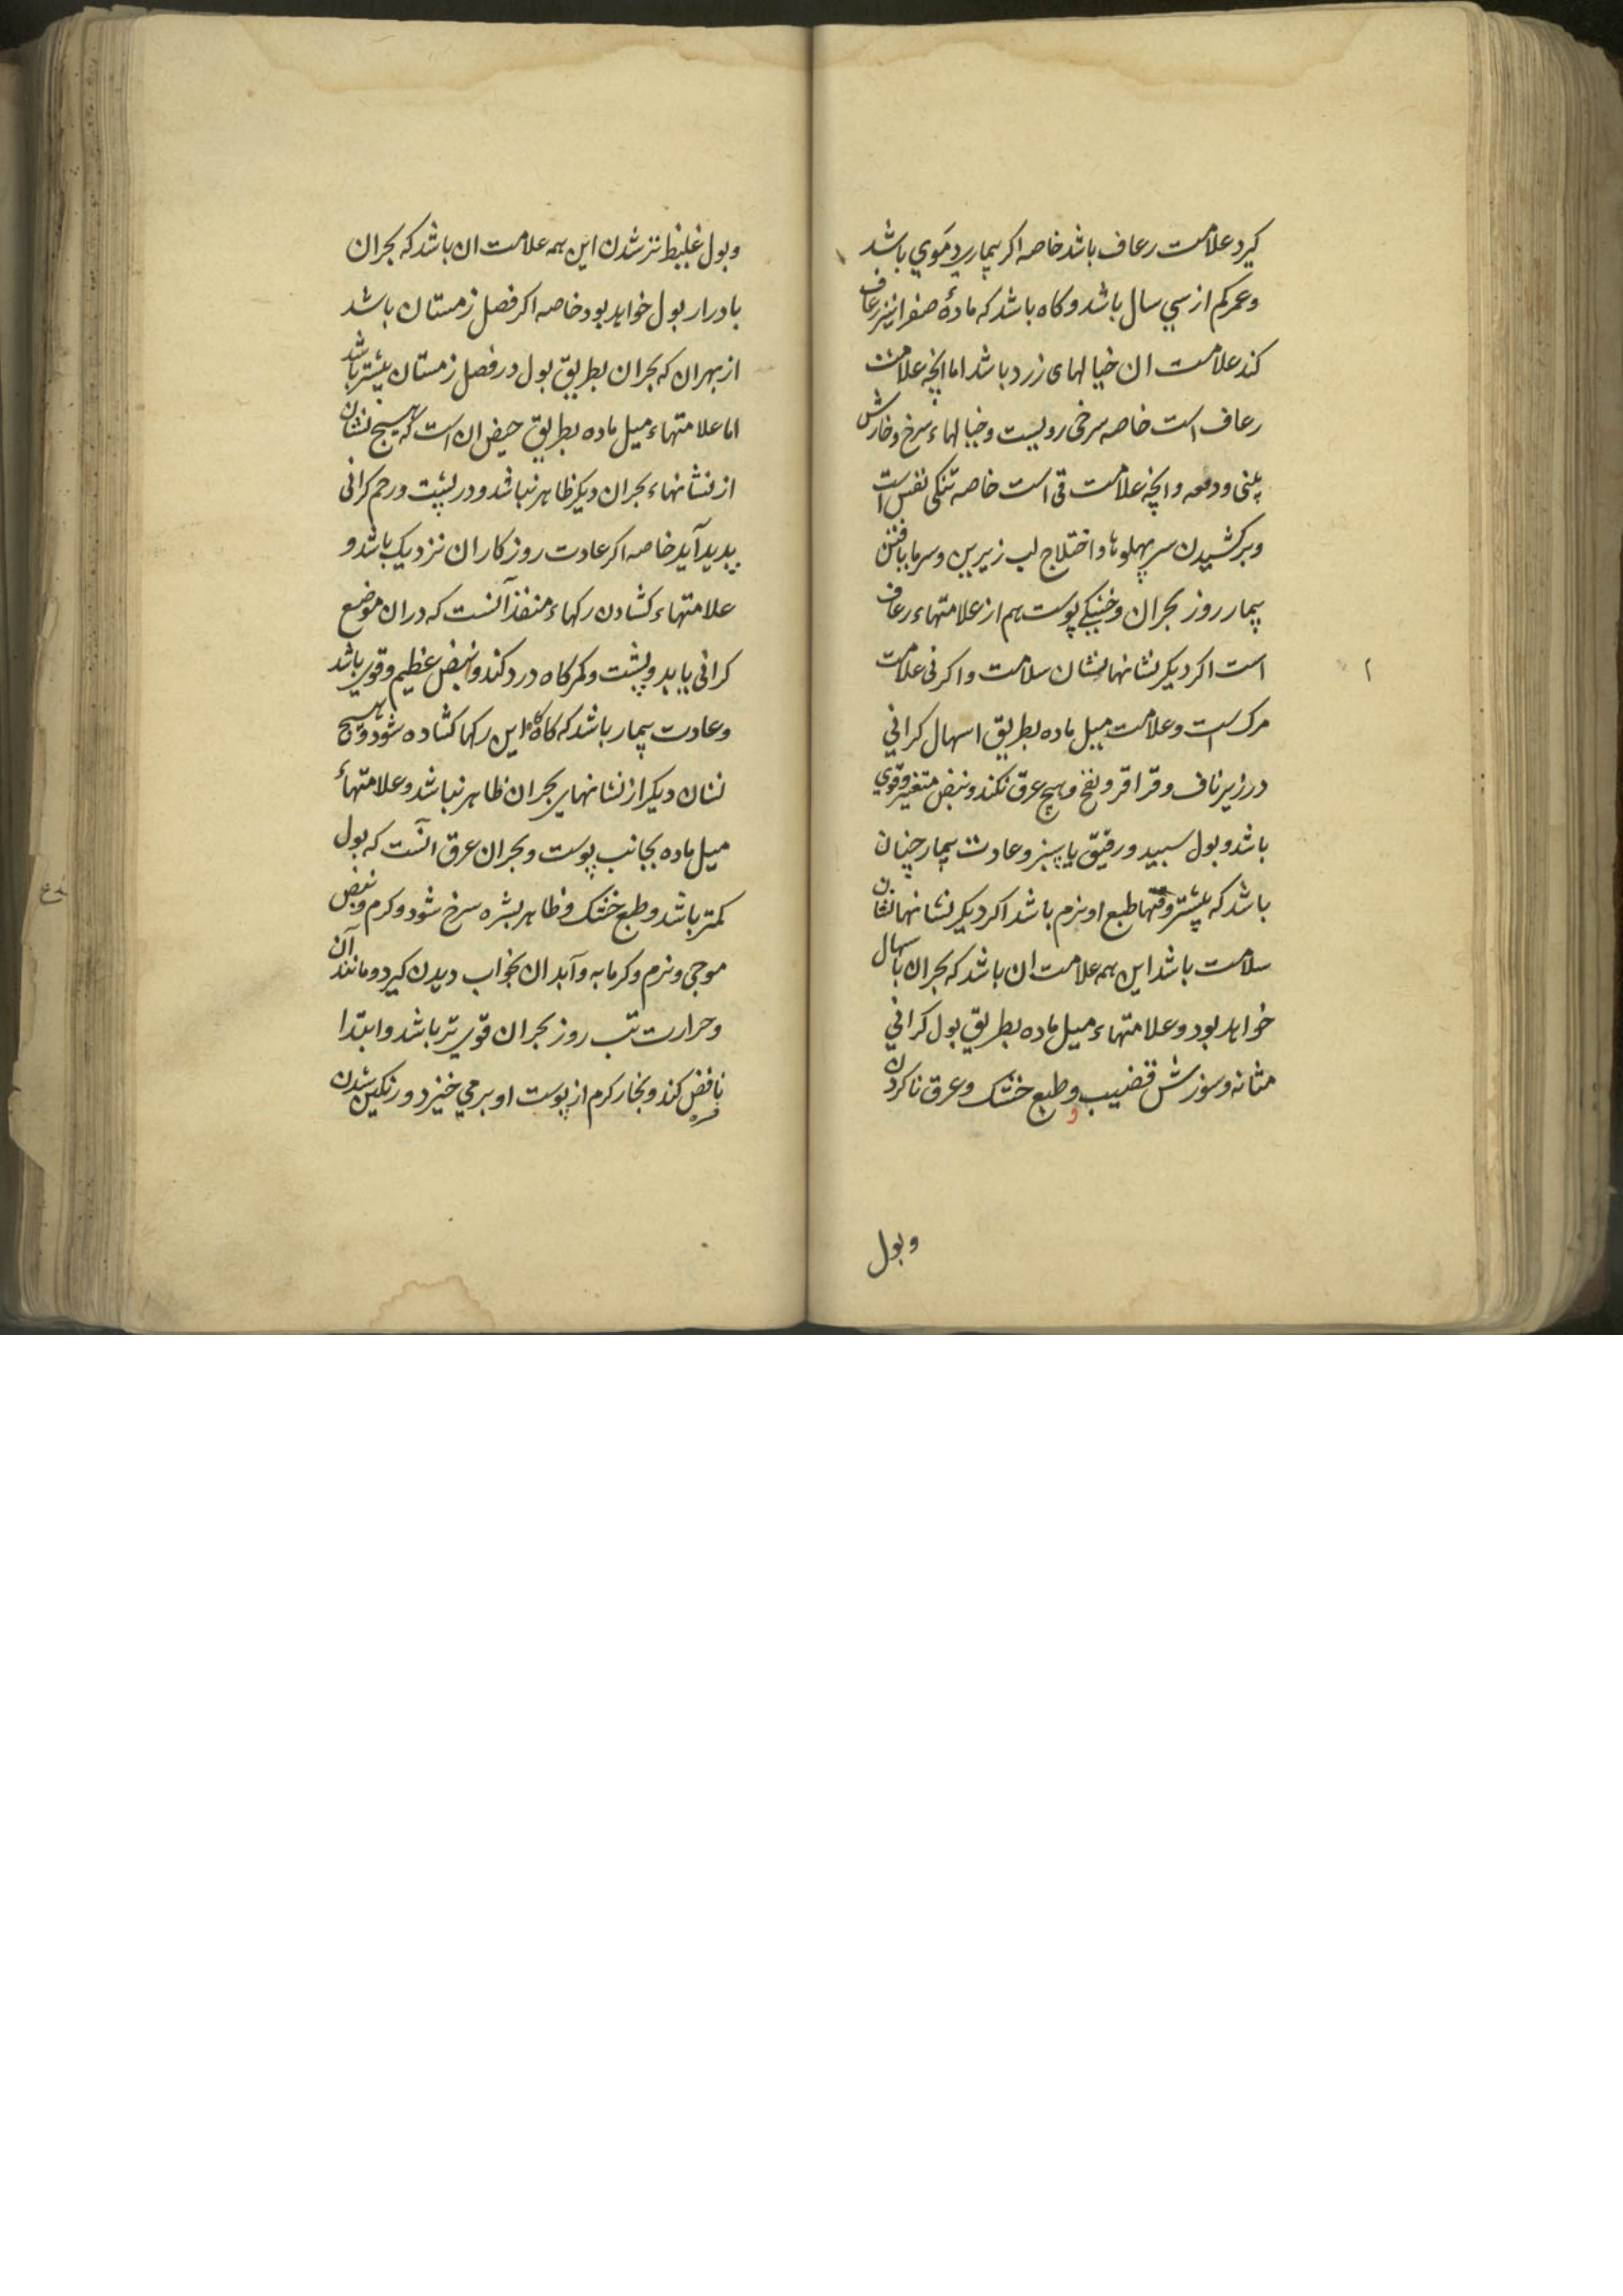 کیرد علامت رعاف باشد خاصه اکر بیماری دموی باشد
وعمر کم از سی سال باشد و کاه باشد که مادهٔ صفرا نیز رعاف
کند علامت ان خیالهای زرد باشد اما انچه علامت
رعاف است خاصه سرخی رویست و خیالهاء سرخ و خارش
بینی و دمعه و انچه علامت قی است خاصه تنکی نفس است
و برکشیدن سر پهلوها و اختلاج لب زیرین و سرما یافتن
بیمار روز بحران و خشکی پوست هم از علامتهاء رعاف
است اکر دیکر نشانها نشان سلامت و اکر نی علامت
مرک است و علامت میل ماده بطریق اسهال کرانی
در زیر ناف و قراقر و نفخ و هیچ عرق نکند و نبض متغیر و قوی
باشد و بول سپید و رقیق یا سبز و عادت بیمار چنان
باشد که بیشتر وقتها طبع او نرم باشد اکر دیکر نشانها نشان
سلامت باشد این همه علامت ان باشد که بحران باسهال
خواهد بود و علامتهاء میل ماده بطریق بول کرانی
مثانه و سوزش قضیب و طبع خشک و عرق ناکردن
و بول
و بول غلیظ تر شدن این همه علامت ان باشد که بحران
بادرار بول خواهد بود خاصه اکر فصل زمستان باشد
از بهران که بحران بطریق بول در فصل زمستان بیشتر باشد
اما علامتهاء میل ماده بطریق حیض ان است که هیچ نشان
از نشانهاء بحران دیکر ظاهر نباشد و در پشت و رحم کرانی
پدید آید خاصه اکر عادت روزکار ان نزدیک باشد و
علامتهاء کشادن رکهاء منفذ آنست که در ان موضع
کرانی یابد و پشت و کمرکاه درد کند و نبض عظیم و قوی باشد
و عادت بیمار باشد که کاه کاه این رکها کشاده شود و هیچ
نشان دیکر از نشانهای بحران ظاهر نباشد و علامتهاء
میل ماده بجانب پوست و بحران عرق انست که بول
کمتر باشد و طبع خشک و ظاهر بشره سرخ شود و کرم و نبض
موجی و نرم و کرمابه و آبدان بخواب دیدن کیرد و مانند آن
و حرارت تب روز بحران قوی تر باشد و ابتدا
نافض کند و بخار کرم از پوست او بر می خیزد و رنکین شدن